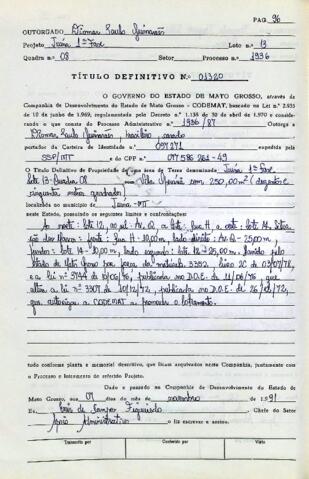 PAG 96
OUTORGADO Diomar Paulo Guimarães
Projeto Juína 1ª Fase Lote n.º 13
Quadra n.º 08 Setor Processo n.º 1936
TÍTULO DEFINITIVO N.º 01320
O GOVERNO DO ESTADO DE MATO GROSSO, através da
Companhia de Desenvolvimento do Estado de Mato Grosso - CODEMAT, baseado na Lei n.º 2.935
de 10 de junho de 1.969, regulamentada pelo Decreto n.º 1.138 de 30 de abril de 1.970 e considerando
o que consta do Processo Administrativo n.º 1936/87 Outorga a
Diomar Paulo Guimarães, brasileiro, casado
portador da Carteira de Identidade n.º 097271 expedida pela
SSP/MT e do CPF n.º 077 586 261-49
O Título Definitivo de Propriedade de uma área de Terra denominada Juína 1ª Fase
lote 13 Quadra 08 com 250,00 m² (duzentos e
cinquenta metros quadrados)
localizados no município de Juína-MT
neste Estado, possuindo os seguintes limites e confrontações:
Ao norte: lote 12, ao sul: Av. Q, a leste: Rua H, a oeste: lote 14.
frente: Rua H - 10,00m, lado direito: Av. Q - 25,00m,
fundos: lote 14 - 10,00m, lado esquerdo: lote 12 - 25,00m.
Estado de Mato Grosso por força da matrícula 3392, livro 2C de 03/07/78,
e a lei nº 3744 de 10/06/76, publicada no D.O.E. de 11/06/76 que
altera a lei nº 3307 de 10/12/72, publicada no D.O.E. de 26/12/72,
que autoriza a CODEMAT a promover o loteamento.
tudo conforme planta e memorial descritivo, que ficam arquivados nesta Companhia, juntamente com
o Processo e Interesses do referido Projeto.
Dado e passado na Companhia de Desenvolvimento do Estado de
Mato Grosso, aos 01 dias do mês de novembro de 1.991
Eu, de Campos Figueiredo Chefe do Setor
Apoio Administrativo o fiz escrever e assino.
Transcrito por Conferido por Visto